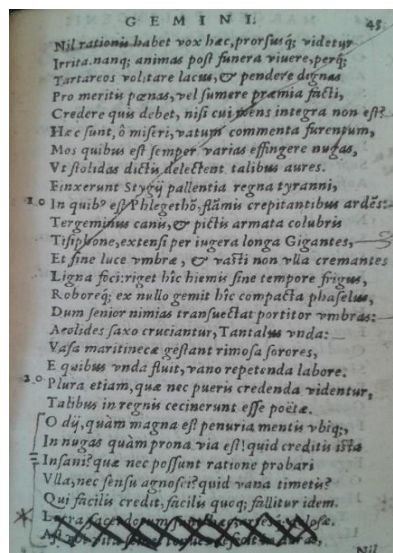 GEMINI. 45
Nil rationis habet vox hæc, prorsusq́; videtur
Irrita. nanq; animas post funera viuere, perq́;
Tartareos volitare lacus, & pendere dignas
Pro meritis pœnas, vel sumere præmia facti,
Credere quis debet, nisi cui mens integra non est?
Hæc sunt, ô miseri, vatum commenta furentum,
Mos quibus est semper varias effingere nugas,
Vt stolidas dictis delectent talibus aures.
Finxerunt Stygij pallentia regna tyranni,
In quibꝰ est Phlegethõ flãmis crepitantibus ardẽs:
Tergeminus canis, & pictis armata colubris
Tisiphone, extensi per iugera longa Gigantes,
Et sine luce vmbræ, & vasti non vlla cremantes
Ligna foci: riget hîc hiemis sine tempore frigus,
Roboreq́; ex nullo gemit hîc compacta phaselus,
Dum senior nimias transuectat portitor vmbras:
Aeolides saxo cruciantur, Tantalus vnda:
Vasa maritinecæ gestant rimosa sorores,
E quibus vnda fluit, vano repetenda labore.
Plura etiam, quæ nec pueris credenda videntur,
Talibus in regnis cecinerunt esse poëtæ.
O dij, quàm magna est penuria mentis vbiq;,
In nugas quàm prona via est! quid creditis ista
Insani? quæ nec possunt ratione probari
Vlla, nec sensu agnosci? quid vana timetis?
Qui facilis credit, facilis quoq; fallitur idem.
Nil